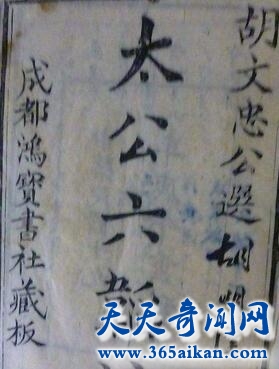 胡文忠公選
太公六韜
成都鴻寶書社藏板
天天奇闻网
www.365aikan.com